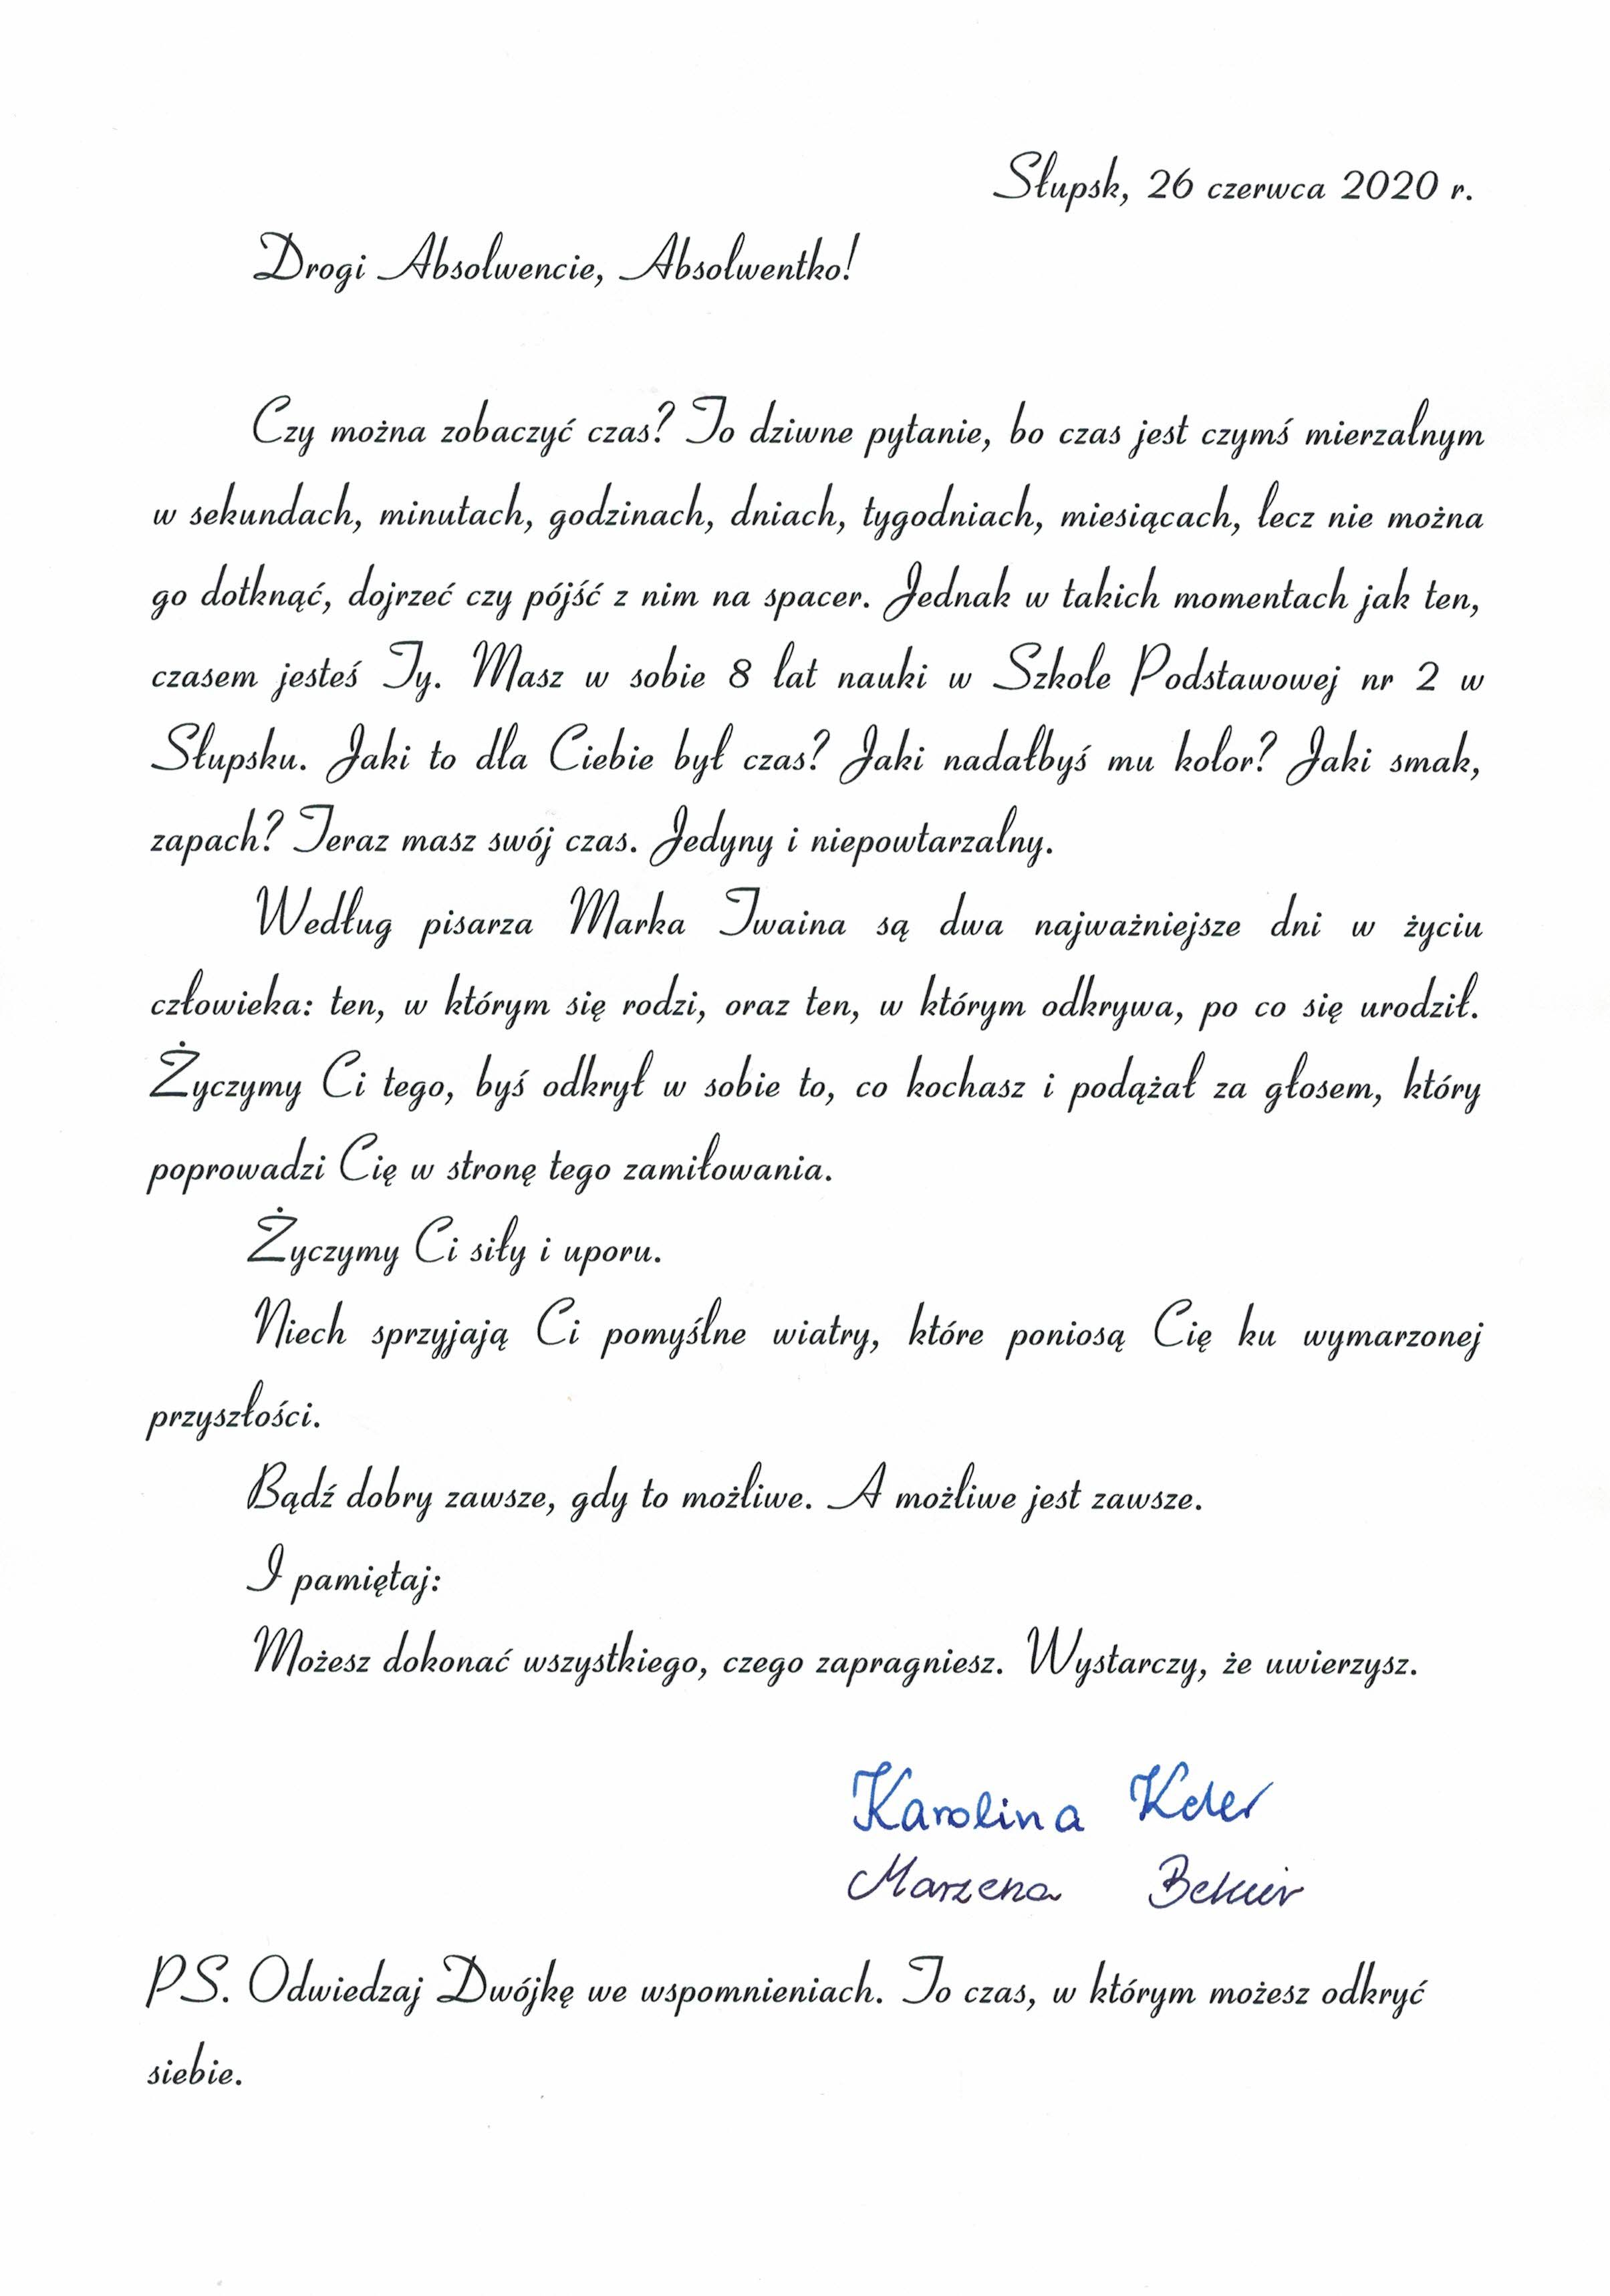 Słupsk, 26 czerwca 2020 r.
Drogi Absolwencie, Absolwentko!
Czy można zobaczyć czas? To dziwne pytanie, bo czas jest czymś mierzalnym
w sekundach, minutach, godzinach, dniach, tygodniach, miesiącach, lecz nie można
go dotknąć, dojrzeć czy pójść z nim na spacer. Jednak w takich momentach jak ten,
czasem jesteś Ty. Masz w sobie 8 lat nauki w Szkole Podstawowej nr 2 w
Słupsku. Jaki to dla Ciebie był czas? Jaki nadałbyś mu kolor? Jaki smak,
zapach? Teraz masz swój czas. Jedyny i niepowtarzalny.
Według pisarza Marka Twaina są dwa najważniejsze dni w życiu
człowieka: ten, w którym się rodzi, oraz ten, w którym odkrywa, po co się urodził.
Życzymy Ci tego, byś odkrył w sobie to, co kochasz i podążał za głosem, który
poprowadzi Cię w stronę tego zamiłowania.
Życzymy Ci siły i uporu.
Niech sprzyjają Ci pomyślne wiatry, które poniosą Cię ku wymarzonej
przyszłości.
Bądź dobry zawsze, gdy to możliwe. A możliwe jest zawsze.
I pamiętaj:
Możesz dokonać wszystkiego, czego zapragniesz. Wystarczy, że uwierzysz.
Karolina
Marzena
PS. Odwiedzaj Dwójkę we wspomnieniach. To czas, w którym możesz odkryć
siebie.